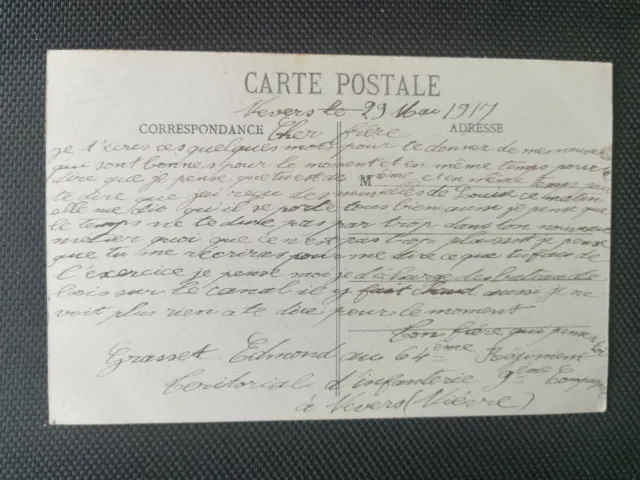 CARTE POSTALE
Nevers le 29 Mai 1917
CORRESPONDANCE Cher frère ADRESSE
je t'écris ces quelques mots pour te donner de mes nouvelles
qui sont bonnes pour le moment et en même temps pour te
dire que je pense que tu est de M même et en même temps pour
te dire que j'ai reçu des nouvelles de Louise ce matin
elle me dit qu'il se porte tous bien aussi je pense que
le temps ne te dure pas par trop dans ton nouveau
métier quoi que ce n'est pas trop plaisant je pense
que tu me récriras pour me dire ce que tu fais de
l'exercice je pense moi je décharge des bateaux de
bois sur le canal il y fait chaud aussi je ne
voit plus rien a te dire pour le moment
Ton frère qui pense a toi
Grasset Edmond au 64ème Régiment
Territorial d'infanterie 9ème Compagnie
à Nevers (Nièvre)